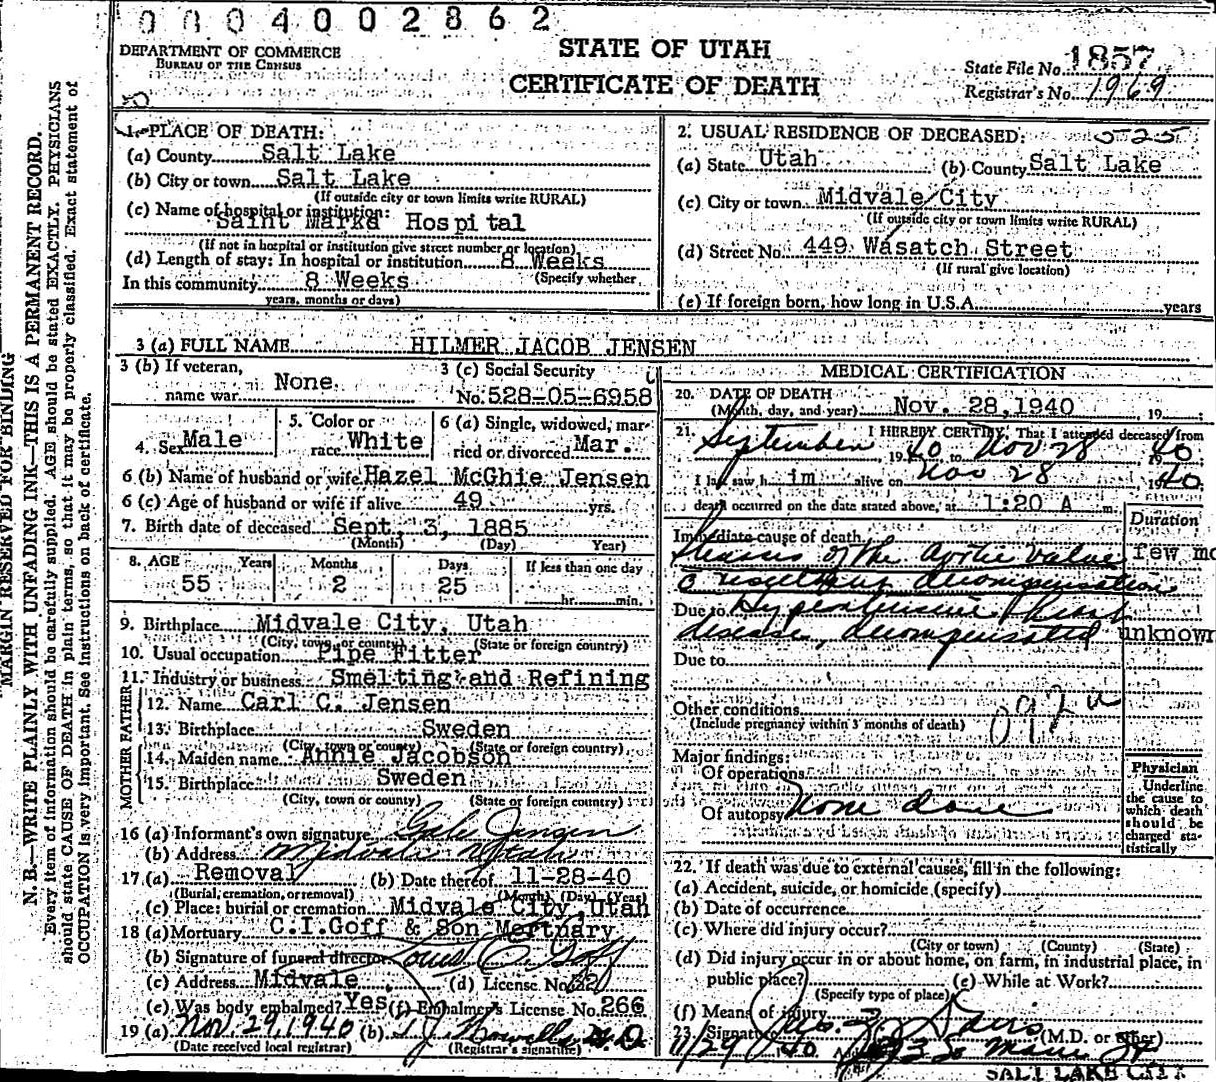 0004002862
DEPARTMENT OF COMMERCE
BUREAU OF THE CENSUS
STATE OF UTAH
CERTIFICATE OF DEATH
State File No. 1857
Registrar's No. 1969
1. PLACE OF DEATH:
(a) County Salt Lake
(b) City or town Salt Lake
(If outside city or town limits write RURAL)
(c) Name of hospital or institution:
Saint Marks Hospital
(If not in hospital or institution give street number or location)
(d) Length of stay: In hospital or institution 8 Weeks
(Specify whether
In this community 8 Weeks
years, months or days)
2. USUAL RESIDENCE OF DECEASED: 525
(a) State Utah (b) County Salt Lake
(c) City or town Midvale City
(If outside city or town limits write RURAL)
(d) Street No. 449 Wasatch Street
(If rural give location)
(e) If foreign born, how long in U.S.A. years
3 (a) FULL NAME HILMER JACOB JENSEN
3 (b) If veteran,
name war None
3 (c) Social Security
No. 528-05-6958
4. Sex Male
5. Color or
race White
6 (a) Single, widowed, mar-
ried or divorced Mar.
6 (b) Name of husband or wife Hazel McGhie Jensen
6 (c) Age of husband or wife if alive 49 yrs.
7. Birth date of deceased Sept. 3, 1885
(Month) (Day) Year)
8. AGE Years Months Days If less than one day
55 2 25 hr. min.
9. Birthplace Midvale City, Utah
(City, town, or county) (State or foreign country)
10. Usual occupation Pipe Fitter
11. Industry or business Smelting and Refining
FATHER
12. Name Carl C. Jensen
13. Birthplace Sweden
(City, town or county) (State or foreign country)
MOTHER
14. Maiden name Annie Jacobson
15. Birthplace Sweden
(City, town or county) (State or foreign country)
16 (a) Informant's own signature Gale Jensen
(b) Address Midvale Utah
17. (a) Removal (b) Date thereof 11-28-40
(Burial, cremation, or removal) (Month) (Day) (Year)
(c) Place: burial or cremation Midvale City, Utah
18 (a) Mortuary C.I.Goff & Son Mortuary
(b) Signature of funeral director Goff
(c) Address Midvale (d) License No.
(e) Was body embalmed? Yes (f) Embalmer's License No. 266
19 (a) Nov 29, 1940 (b) M.D.
(Date received local registrar) (Registrar's signature)
MEDICAL CERTIFICATION
20. DATE OF DEATH
(Month, day, and year) Nov. 28,1940 19
21. I HEREBY CERTIFY, That I attended deceased from
September 1940 to Nov 28 1940
I last saw h im alive on Nov 28 1940
death occurred on the date stated above, at 1:20 A m.
Duration
Immediate cause of death
Stenosis of the aortic valve few mo
c resulting decompensation
Due to Hypertensive heart
disease, decompensated unknown
Due to
Other conditions
(Include pregnancy within 3 months of death)
092 a
Major findings:
Of operations
Of autopsy None done
Physician
Underline
the cause to
which death
should be
charged sta-
tistically
22. If death was due to external causes, fill in the following:
(a) Accident, suicide, or homicide (specify)
(b) Date of occurrence
(c) Where did injury occur?
(City or town) (County) (State)
(d) Did injury occur in or about home, on farm, in industrial place, in
public place? (e) While at Work?
(Specify type of place)
(f) Means of injury
23. Signature Davis (M.D. or other)
11/29 40 Main St
SALT LAKE CITY
MARGIN RESERVED FOR BINDING
N. B.—WRITE PLAINLY WITH UNFADING INK—THIS IS A PERMANENT RECORD.
Every item of information should be carefully supplied. AGE should be stated EXACTLY. PHYSICIANS
should state CAUSE OF DEATH in plain terms, so that it may be properly classified. Exact statement of
OCCUPATION is very important. See instructions on back of certificate.